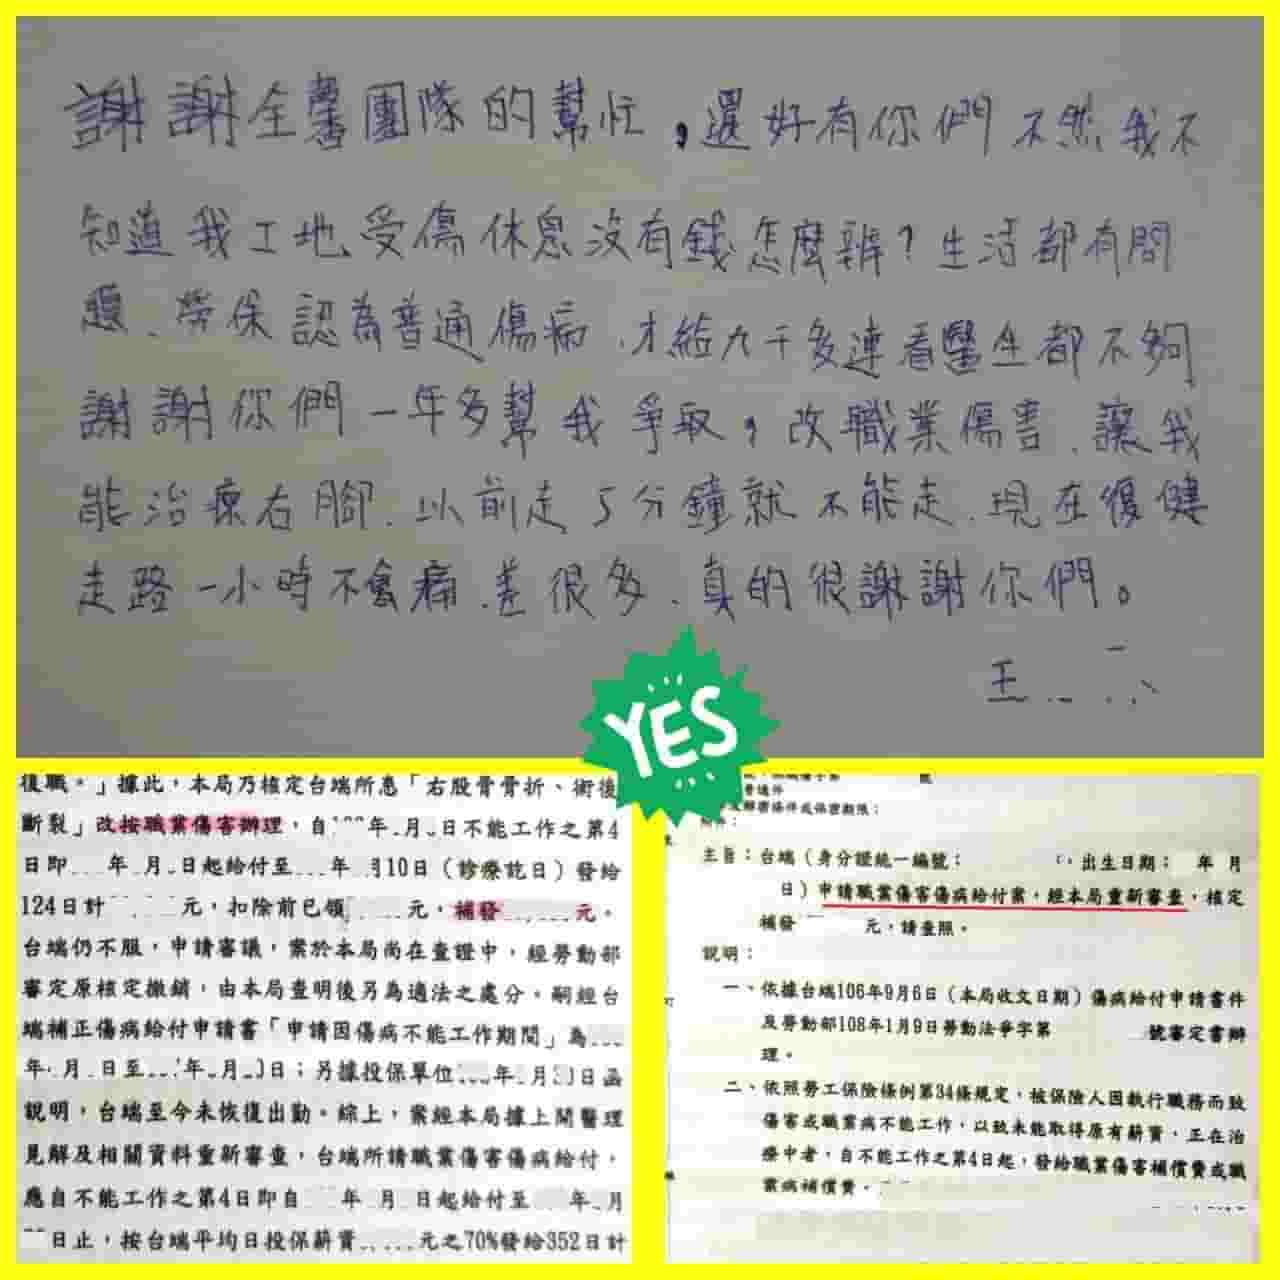 謝謝全馨團隊的幫忙，還好有你們不然我不
知道我工地受傷休息沒有錢怎麼辦？生活都有問
題、勞保認為普通傷病、才給九千多連看醫生都不夠
謝謝你們一年多幫我爭取，改職業傷害、讓我
能治療右腳、以前走5分鐘就不能走、現在復健
走路一小時不會痛、差很多、真的很謝謝你們。
王
YES
復職。」據此，本局乃核定台端所患「右股骨骨折、術後
斷裂」改按職業傷害辦理，自 年 月 日不能工作之第4
日即 年 月 日起給付至 年 月10日（診療訖日）發給
124日計 元，扣除前已領 元，補發 元。
台端仍不服，申請審議，案於本局尚在查證中，經勞動部
審定原核定撤銷，由本局查明後另為適法之處分。嗣經台
端補正傷病給付申請書「申請因傷病不能工作期間」為
年 月 日至 年 月 日；另據投保單位 年 月 日函
說明，台端至今未恢復出勤。綜上，案經本局據上開醫理
見解及相關資料重新審查，台端所請職業傷害傷病給付，
應自不能工作之第4日即自 年 月 日起給付至 年 月
日止，按台端平均日投保薪資 元之70%發給352日計
密等及解密條件或保密期限：
附件：
主旨：台端（身分證統一編號： ，出生日期： 年 月
日）申請職業傷害傷病給付案，經本局重新審查，核定
補發 元，請查照。
說明：
一、依據台端106年9月6日（本局收文日期）傷病給付申請書件
及勞動部108年1月9日勞動法爭字第 號審定書辦
理。
二、依照勞工保險條例第34條規定，被保險人因執行職務而致
傷害或職業病不能工作，以致未能取得原有薪資，正在治
療中者，自不能工作之第4日起，發給職業傷害補償費或職
業病補償費。